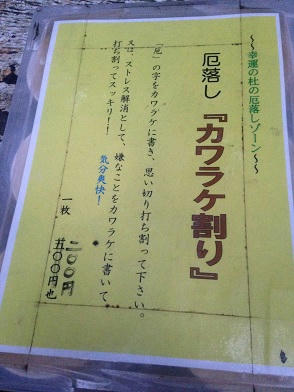 ～～幸運の杜の厄落しゾーン～～
厄落し『カワラケ割り』
「厄」の字をカワラケに書き、思い切り打ち割って下さい。
又は、ストレス解消として、嫌なことをカワラケに書いて
打ち割ってスッキリ！！
気分爽快！
一枚
二〇〇円
五〇〇円也